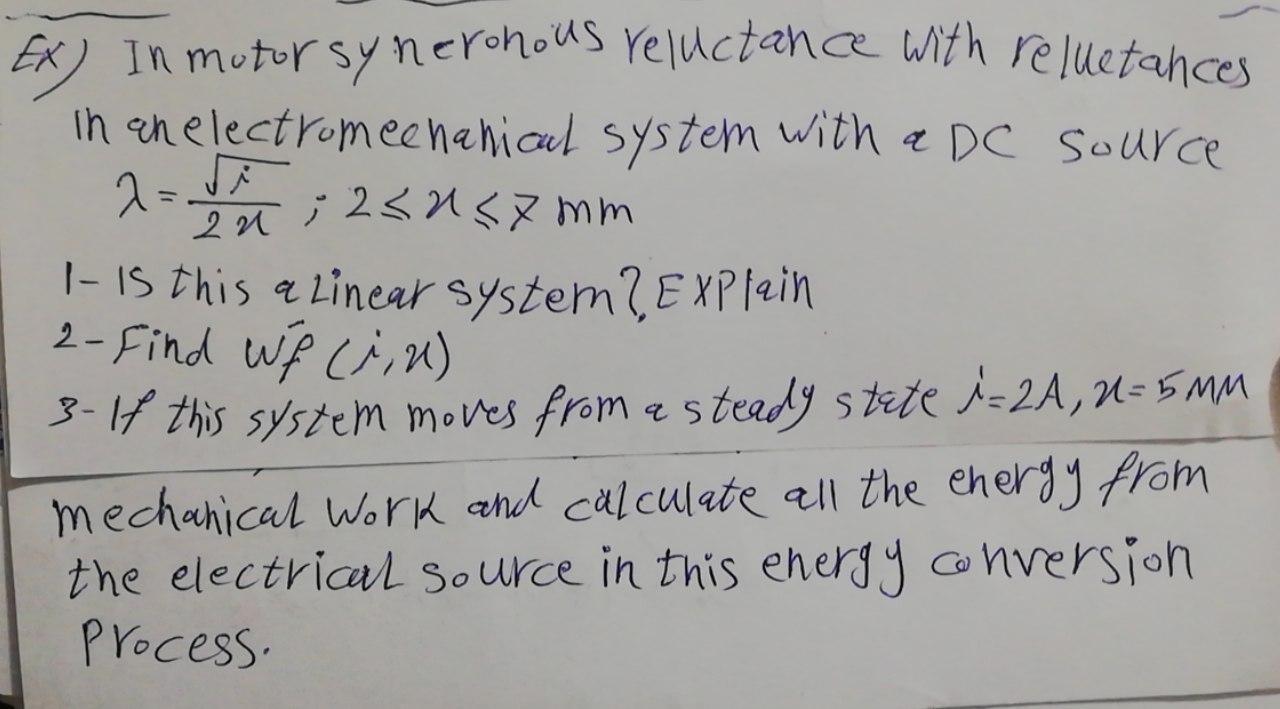 Ex) In motor syneronous reluctance with reluetances
in an electromechanical system with a DC source
λ = √i / 2x ; 2 ≤ x ≤ 7 mm
1- Is this a Linear system? Explain
2- Find Wf̄ (i, x)
3- If this system moves from a steady state i=2A, x=5MM
mechanical work and calculate all the energy from
the electrical source in this energy conversion
Process.